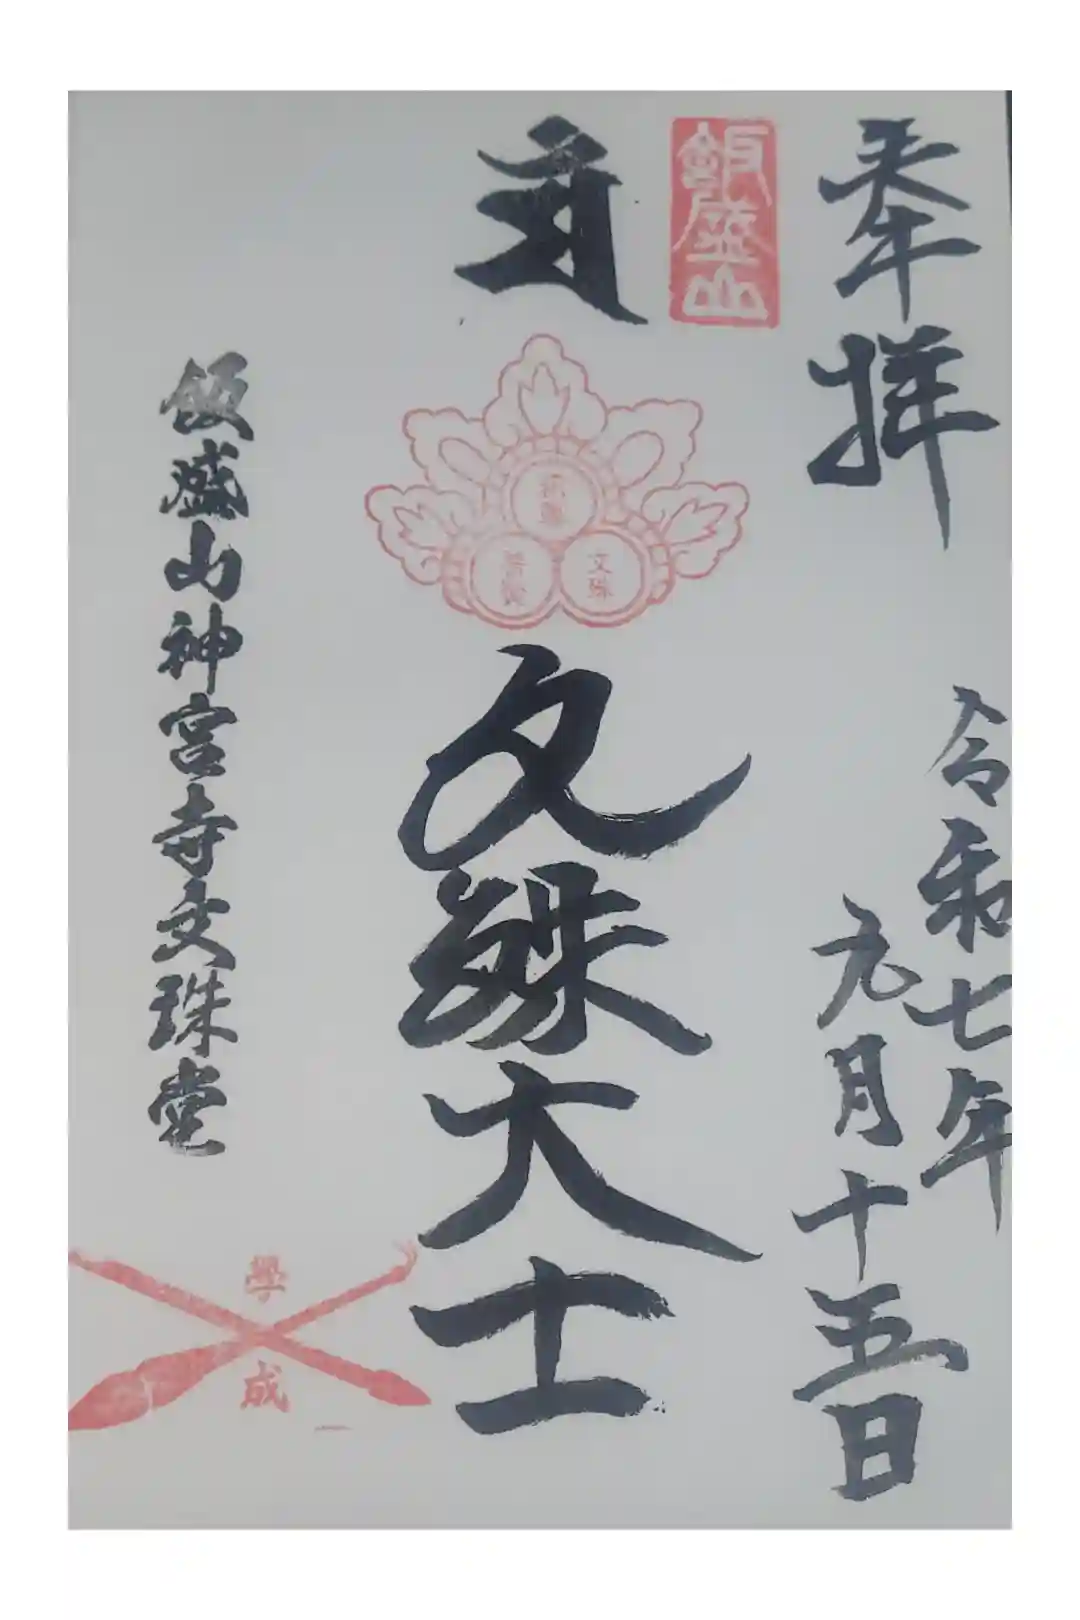 奉拝
令和七年
元月十五日
飯盛山
文殊
文殊大士
飯盛山神宮寺文珠堂
學
成